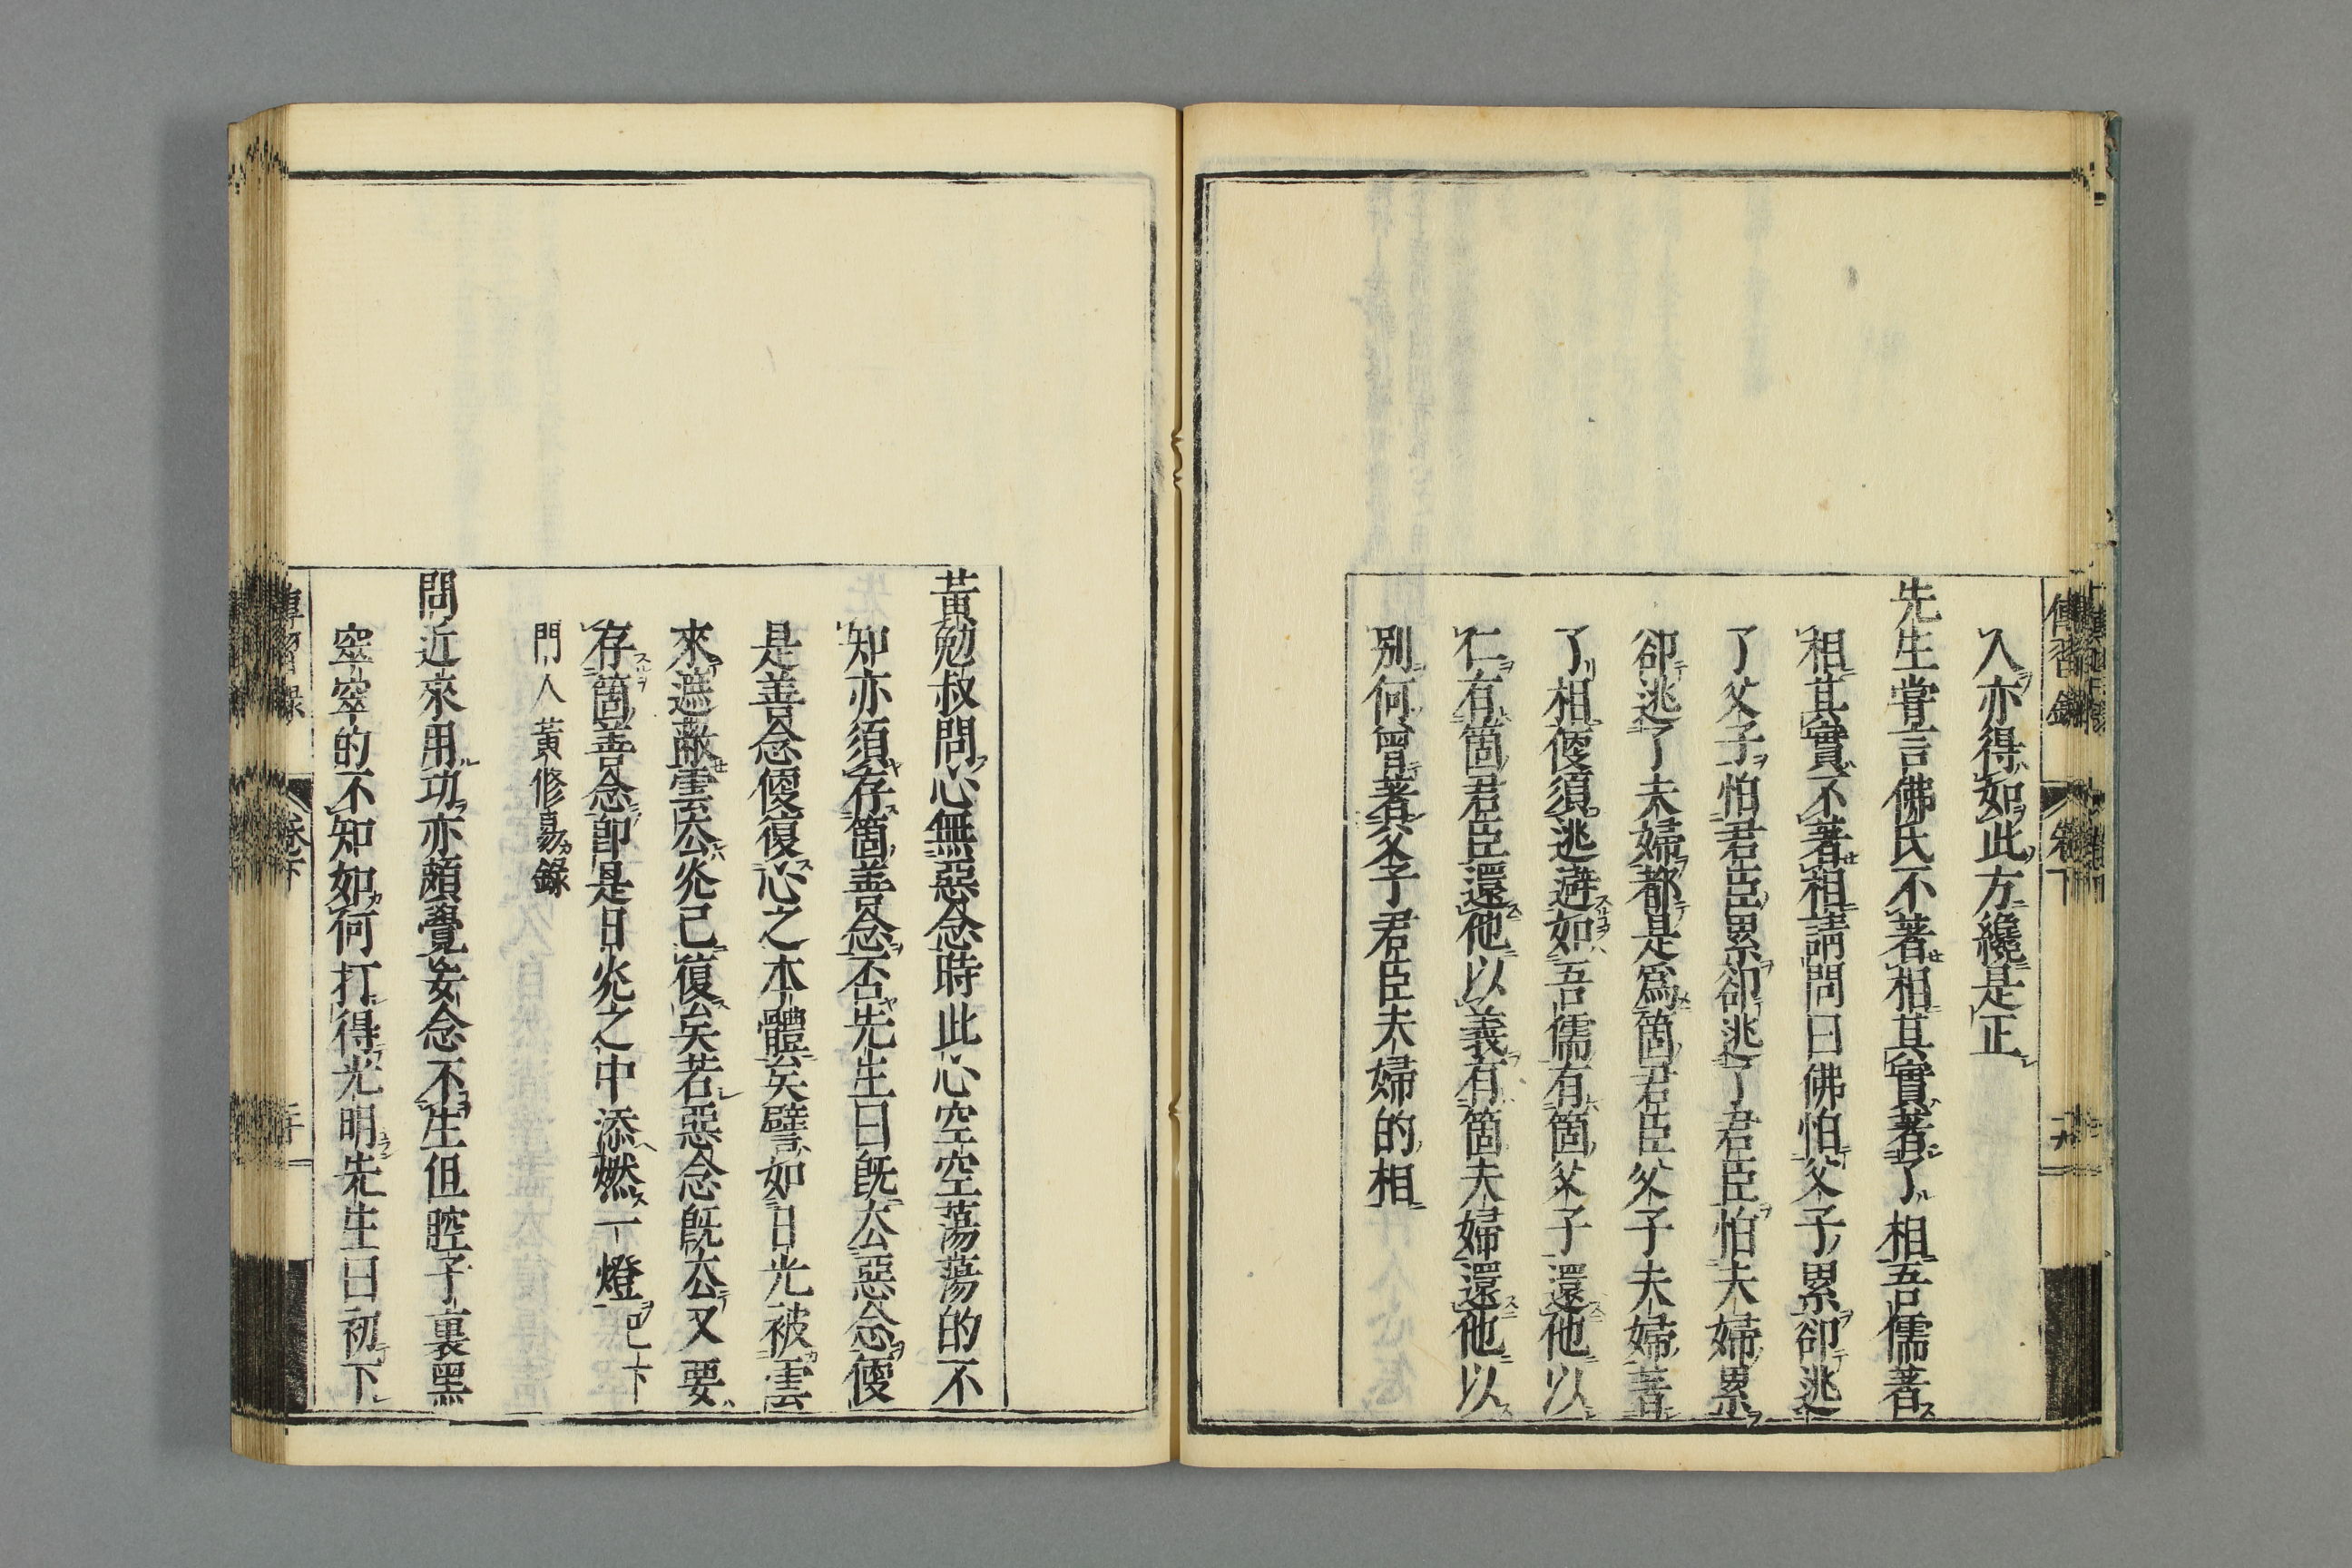 傳習錄
卷下
入亦得如此方纔是正
先生嘗言佛氏不著相其實著了相吾儒著
相其實不著相請問曰佛怕父子累卻逃
了父子怕君臣累卻逃了君臣怕夫婦累
卻逃了夫婦都是爲箇君臣父子夫婦著
了相便須逃避如吾儒有箇父子還他以
仁有箇君臣還他以義有箇夫婦還他以
別何曾著父子君臣夫婦的相
黃勉叔問心無惡念時此心空空蕩蕩的不
知亦須存箇善念否先生曰旣去惡念便
是善念便復心之本體矣譬如日光被雲
來遮蔽雲去光已復矣若惡念旣去又要
存箇善念卽是日光之中添燃一燈已下
門人黃修易錄
問近來用功亦頗覺妄念不生但腔子裏黑
窣窣的不知如何打得光明先生曰初下
傳習錄
卷下
二十